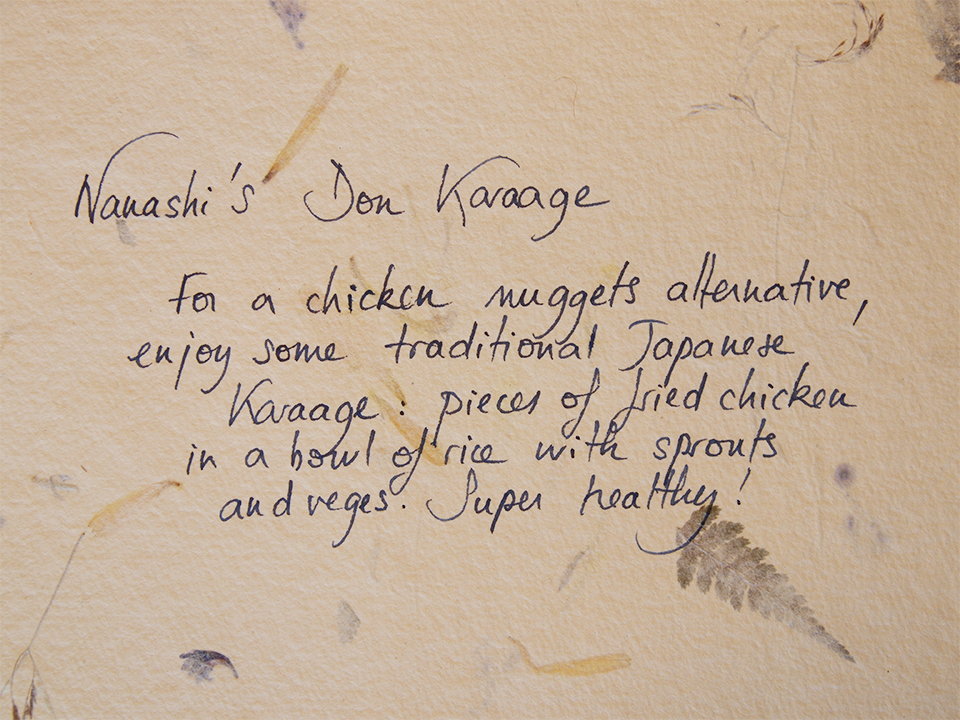 Nanashi's Don Karaage
For a chicken nuggets alternative,
enjoy some traditional Japanese
Karaage : pieces of fried chicken
in a bowl of rice with sprouts
and veges. Super healthy!